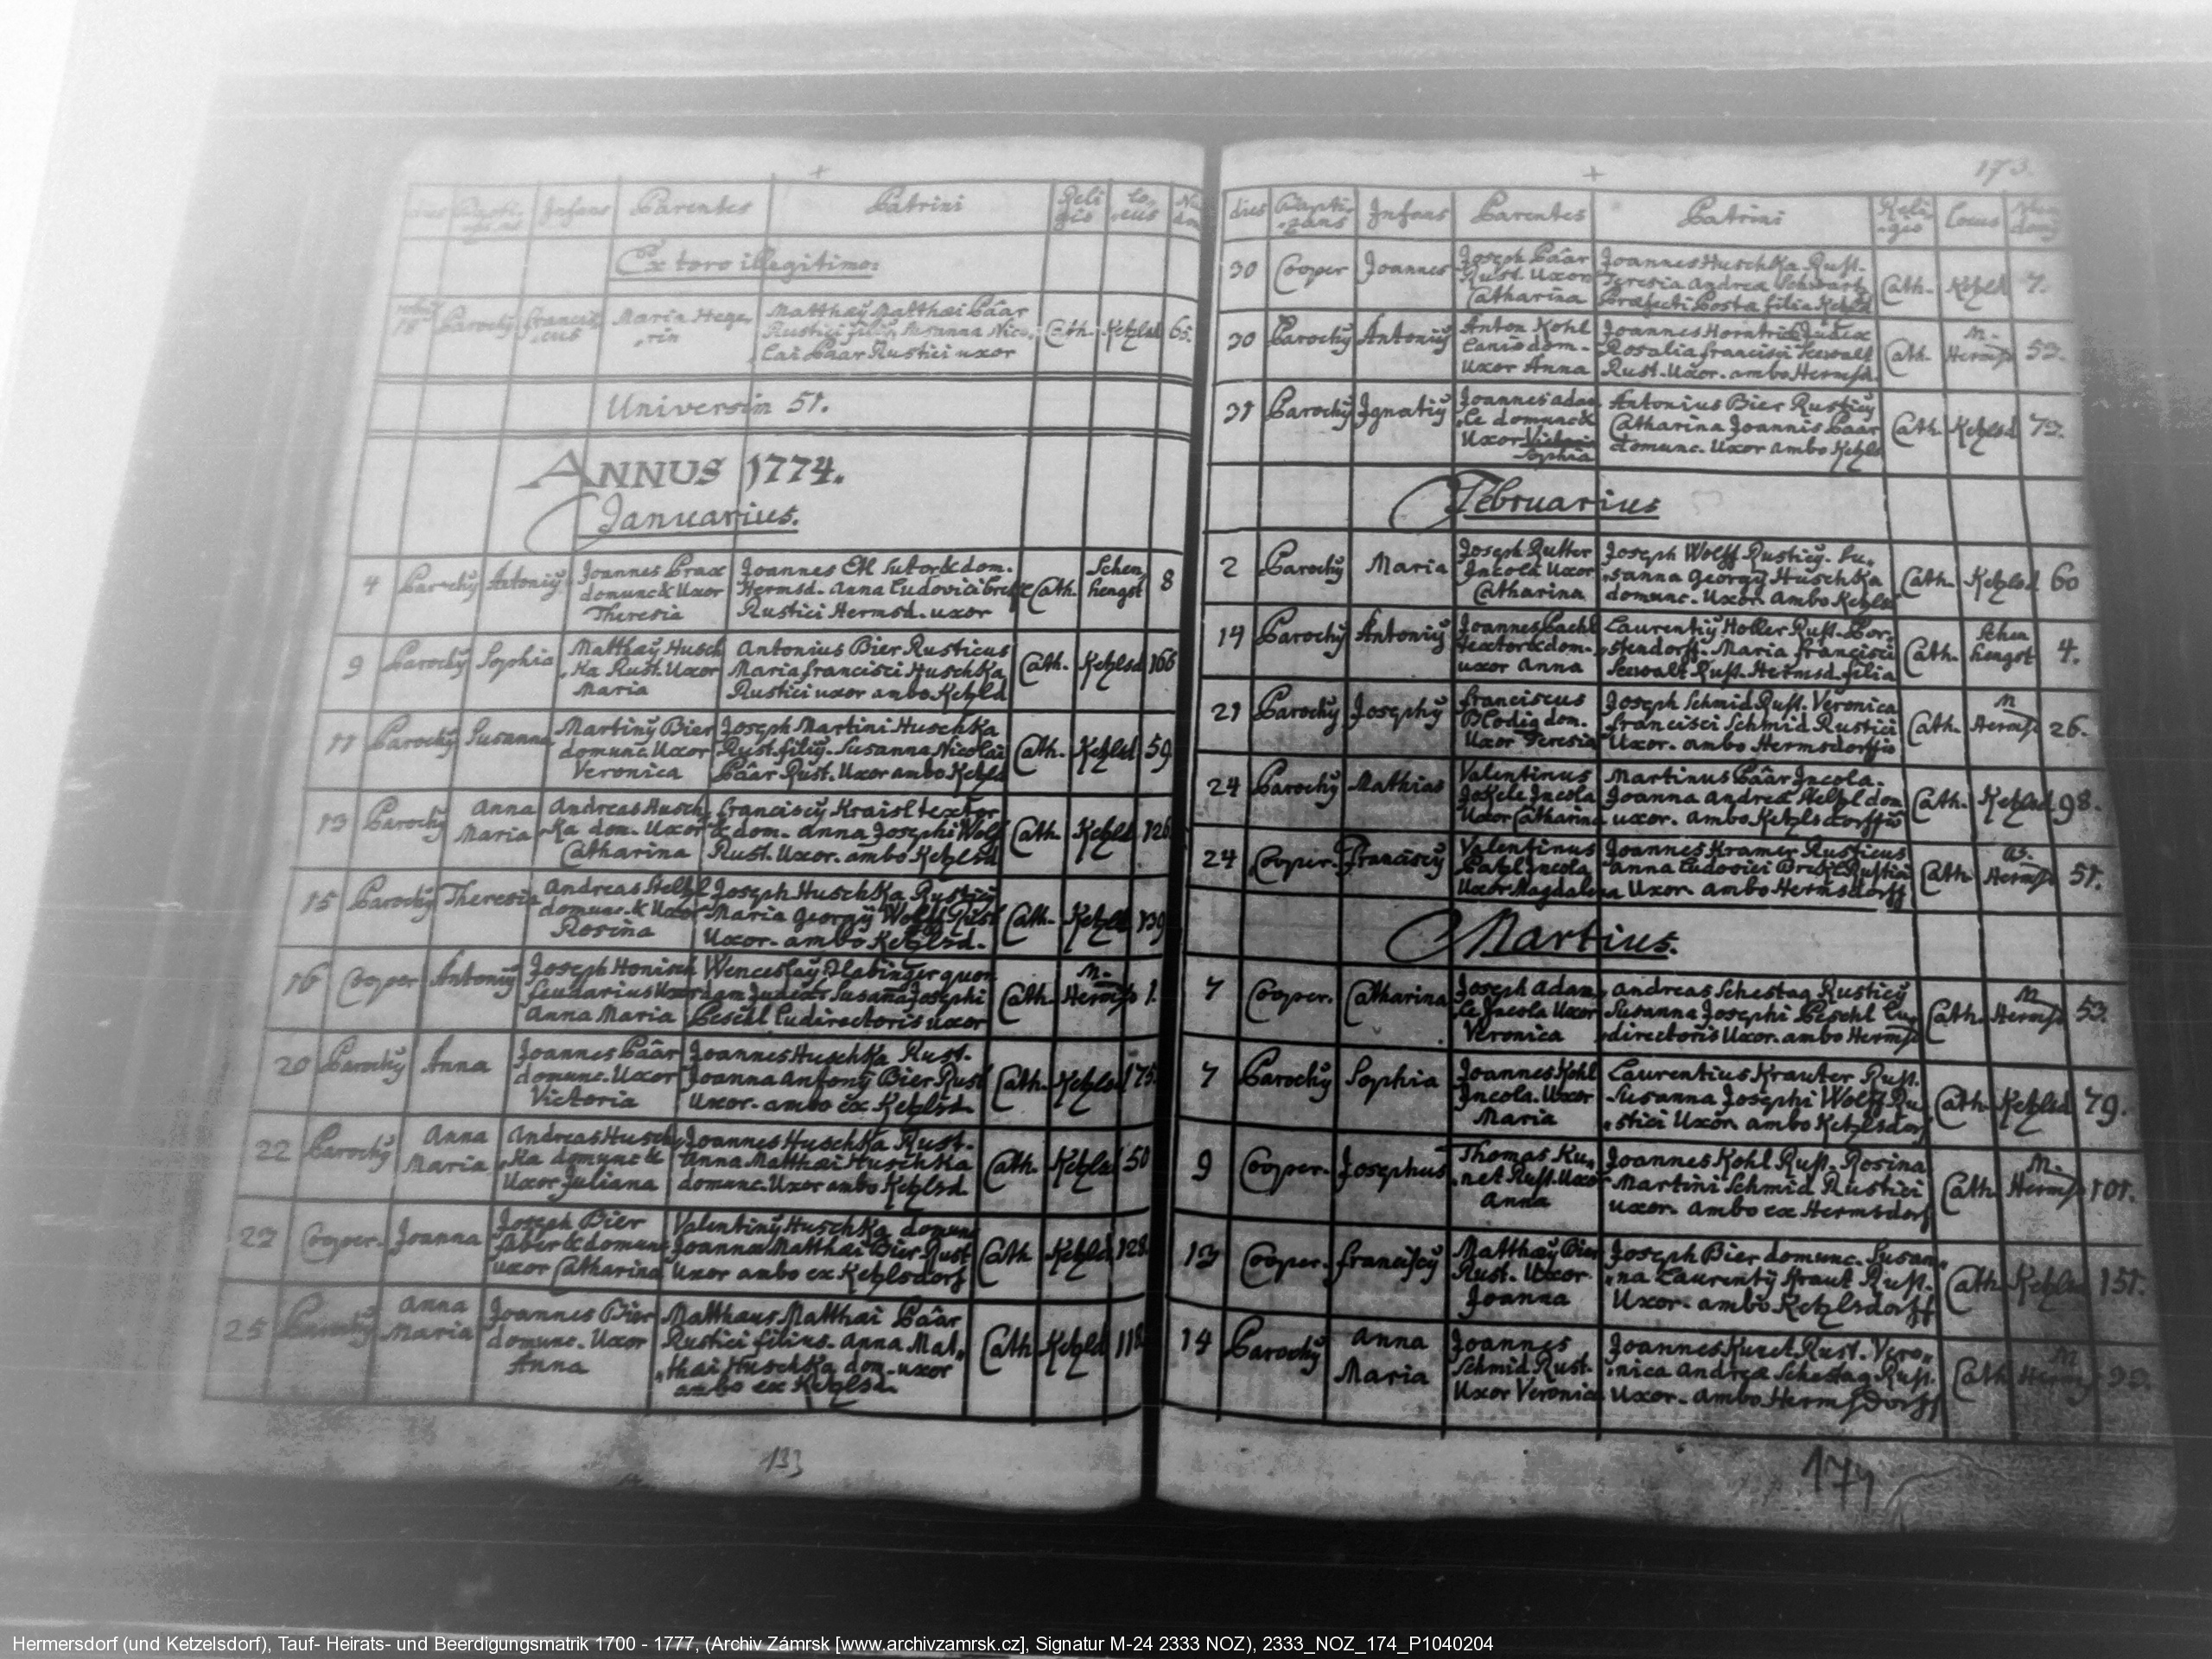 dies Infans Parentes Patrini Reli
gio Lo,
cus
Ex toro illegitimo:
18 Parochy Francis,
cus Maria Heger,
rin Matthaÿ Matthæi Pâar
Rustici filiy, Susanna Nico,
lai Paar Rustici uxor Cath. Ketzlsd 65.
Universim 51.
ANNUS 1774.
Januarius.
4 Parochy Antoniy Joannes Prax
domunc. & Uxor
Theresia Joannes Etl Sutor & dom.
Hermsd. Anna Ludovici
Rustici Hermsd. uxor Cath. Schen
hengst 8
9 Parochy Sophia Matthaÿ Husch
,,Ka Rust. Uxor
Maria Antonius Bier Rusticus
Maria Francisci HuschKa
Rustici uxor ambo Ketzld Cath. Ketzlsd 166
11 Parochy Susanna Martinÿ Bier
domunc. Uxor
Veronica Joseph Martini Huschka
Rust. filiÿ. Susanna Nicolai
Pâar Rust. Uxor ambo Ketzld Cath. Ketzlsd 59
13 Parochy Anna
Maria Andreas Husch,
,,Ka dom. Uxor
Catharina Franciscÿ Kraisl textor
& dom. Anna Josephi Wolf
Rust. Uxor. ambo Ketzlsd Cath. Ketzlsd 126
15 Parochy Theresia Andreas Steltzl
domunc. & Uxor
Rosina Joseph HuschKa Rusticÿ
Maria Georgÿ Wolff Rust
Uxor. ambo Ketzlsd. Cath. Ketzlsd 139
16 Cooper Antoniy Joseph Honisch
feudarius Uxor
Anna Maria Wenceslaÿ Habinger quon
dam Judex Susanna Josephi
Peschl Ludirectoris uxor Cath. M.
Hermsd 1.
20 Parochy Anna Joannes Pâar
domunc. Uxor
Victoria Joannes HuschKa Rust.
Joanna Antonÿ Bier Rust
Uxor. ambo ex Ketzlsd. Cath. Ketzlsd 175.
22 Parochy Anna
Maria Andreas Husch,
,,Ka domunc &
Uxor Juliana Joannes HuschKa Rust.
Anna Matthæi HuschKa
domunc. Uxor ambo Ketzlsd. Cath. Ketzlsd 50
23 Cooper. Joanna Joseph Bier
faber & domunc
uxor Catharina Valentinÿ HuschKa domunc
Joanna Matthæi Bier Rust
Uxor ambo ex Ketzlsdorf Cath Ketzlsd 128.
25 Parochy Anna
Maria Joannes Bier
domunc. Uxor
Anna Matthæus Matthæi Pâar
Rustici filius. Anna Mat,,
,,thæi HuschKa dom. uxor
ambo ex Ketzlsd. Cath Ketzld 118
133
173.
dies Bapti,
,,zans Infans Parentes Patrini Reli,
,,gio Locus
30 Cooper Joannes Joseph Pâar
Rust. Uxor
Catharina Joannes HuschKa Rust.
Teresia Andreæ Schwartz
Præfecti Posta filia Ketzld Cath. Ketzld 7.
30 Parochy Antoniÿ Anton Kohl
Lanio dom.
Uxor Anna Joannes Judex
Rosalia Francisci Seewalt
Rust. Uxor. ambo Hermsd. Cath. M.
Hermsd 53.
31 Parochy Ignatiÿ Joannes Adam,
,,le domunc &
Uxor Victoria
Sophia Antonius Bier Rusticÿ
Catharina Joannis Pâar
domunc. Uxor ambo Ketzls Cath. Ketzlsd 73.
Februarius
2 Parochy Maria Joseph Rutter
Incola Uxor
Catharina Joseph Wolff Rusticÿ. Su,
,,sanna Georgÿ HuschKa
domunc. Uxor. Ambo Ketzls Cath. Ketzlsd 60
14 Parochy Antoniÿ Joannes Pachl
textor & dom.
uxor Anna Laurentiÿ Holler Rust. Por,
,,stendorff. Maria Francisci
Seewalt Rust. Hermsd. filia Cath. Schen
hengst 4.
21 Parochy Josephÿ Franciscus
Blodig dom.
Uxor Teresia Joseph Schmid Rust. Veronica
Francisci Schmid Rustici
Uxor. ambo Hermsdorffio Cath. M
Hermsd 26.
24 Parochy Mathias Valentinus
JaKele Incola
Uxor Catharina Martinus Pâar Incola.
Joanna Andreæ Steltzl dom
uxor. ambo Ketzlsdorffio Cath. Ketzlsd 98.
24 Cooper. Franciscÿ Valentinus
Patzl Incola
Uxor Magdalena Joannes Kramer Rusticus
Anna Ludovici Rustici
Uxor. ambo Hermsdorff Cath Hermsd 51.
Martius.
7 Cooper. Catharina Joseph Adam,
,,le Incola Uxor
Veronica Andreas Schestag Rusticÿ
Susanna Josephi Peschl Lu,
,,directoris Uxor. ambo Hermsd Cath. M
Hermsd 53.
7 Parochy Sophia Joannes Kohl
Incola. Uxor
Maria Laurentius Krauter Rust.
Susanna Josephi Wolff Ru,
,,stici Uxor. ambo Ketzlsdorf Cath. Ketzlsd 79.
9 Cooper. Josephus Thomas Ku,
,,net Rust. Uxor
Anna Joannes Kohl Rust. Rosina
Martini Schmid Rustici
uxor. Ambo ex Hermsdorf Cath. M.
Hermsd 101.
13 Cooper. Franciscÿ Matthæÿ Bier
Rust. Uxor
Joanna Joseph Bier domunc. Susan,,
,,na Laurentÿ Kraut Rust.
Uxor. ambo Ketzlsdorff Cath Ketzlsd 151.
14 Parochy Anna
Maria Joannes
Schmid Rust.
Uxor Veronica Joannes Kunet Rust. Vero,,
,,nica Andreæ Schestag Rust.
Uxor. ambo Hermsdorff Cath M
Hermsd
174
Hermersdorf (und Ketzelsdorf), Tauf- Heirats- und Beerdigungsmatrik 1700 - 1777, (Archiv Zámrsk [www.archivzamrsk.cz], Signatur M-24 2333 NOZ), 2333_NOZ_174_P1040204